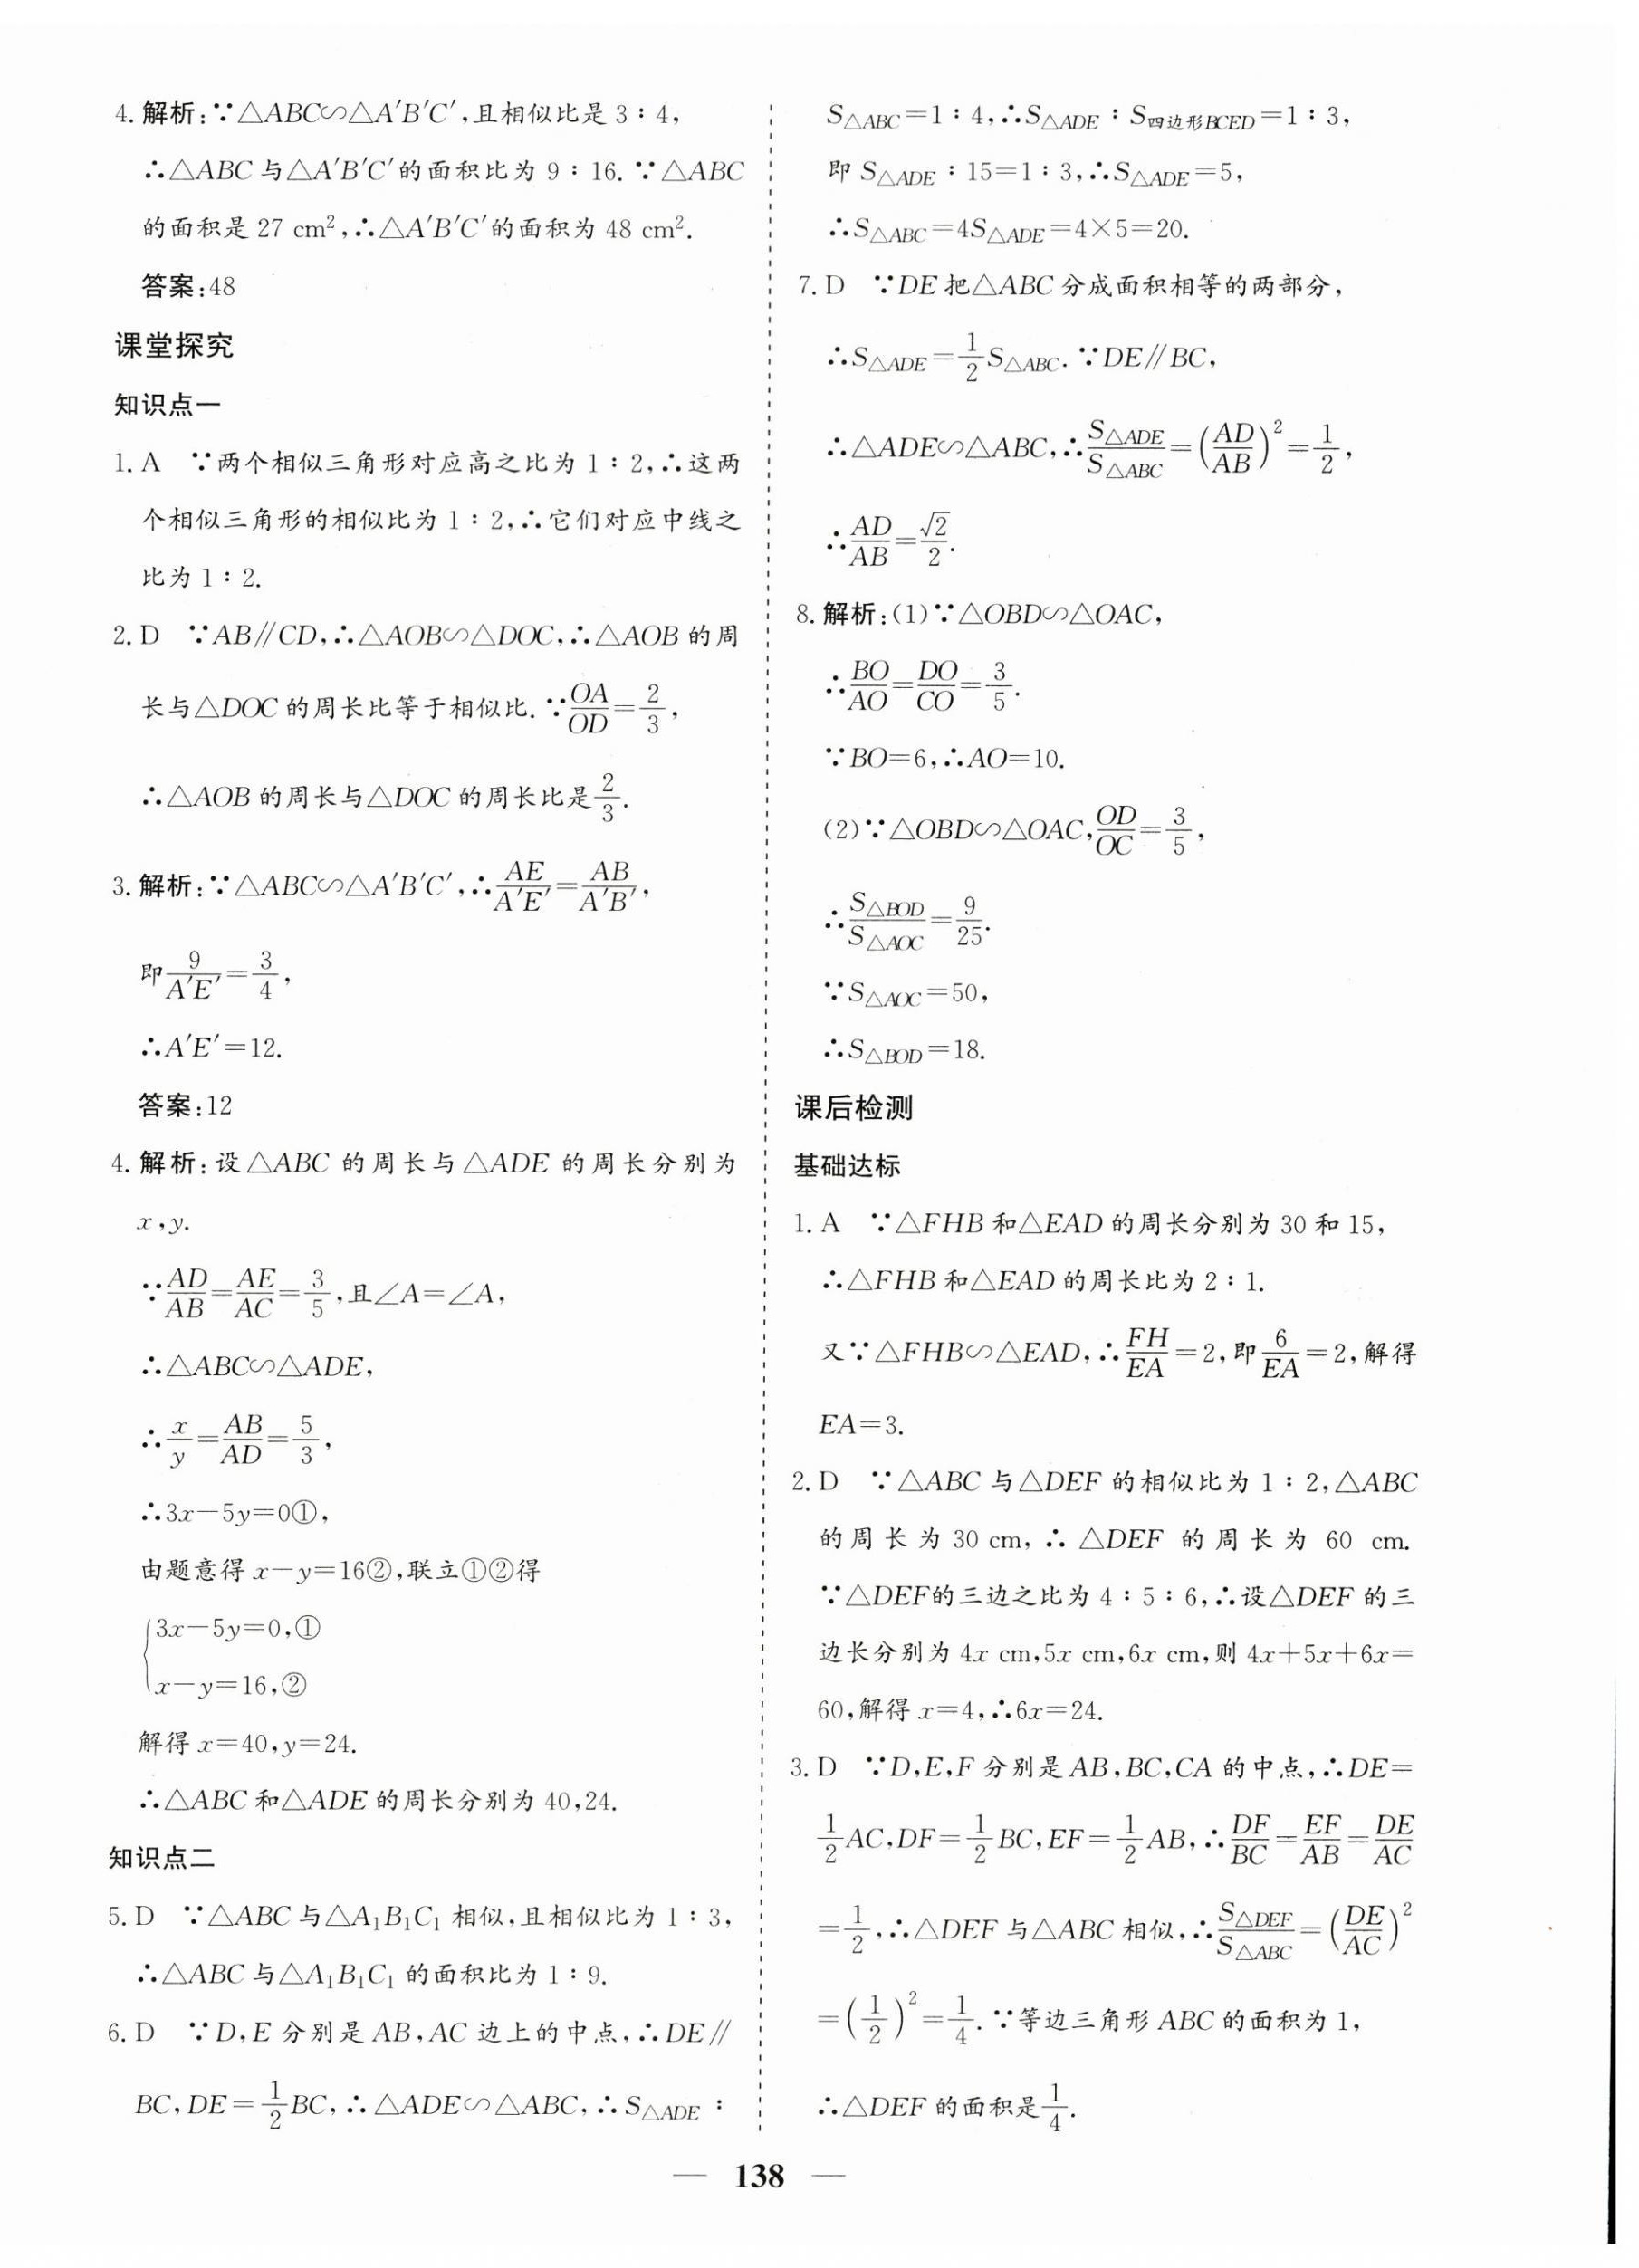 4. 解析:∵△ABC∽△A′B′C′,且相似比是 3∶4,
∴△ABC 与△A′B′C′的面积比为 9∶16. ∵△ABC
的面积是 27 cm²,∴△A′B′C′的面积为 48 cm².
答案:48
课堂探究
知识点一
1. A ∵两个相似三角形对应高之比为 1∶2,∴这两
个相似三角形的相似比为 1∶2,∴它们对应中线之
比为 1∶2.
2. D ∵AB∥CD,∴△AOB∽△DOC,∴△AOB 的周
长与△DOC 的周长比等于相似比. ∵OA/OD=2/3,
∴△AOB 的周长与△DOC 的周长比是2/3.
3. 解析:∵△ABC∽△A′B′C′,∴AE/A′E′=AB/A′B′,
即9/A′E′=3/4,
∴A′E′=12.
答案:12
4. 解析:设△ABC 的周长与△ADE 的周长分别为
x,y.
∵AD/AB=AE/AC=3/5,且∠A=∠A,
∴△ABC∽△ADE,
∴x/y=AB/AD=5/3,
∴3x-5y=0①,
由题意得 x-y=16②,联立①②得
{3x-5y=0,①
x-y=16,②
解得 x=40,y=24.
∴△ABC 和△ADE 的周长分别为 40,24.
知识点二
5. D ∵△ABC 与△A₁B₁C₁ 相似,且相似比为 1∶3,
∴△ABC 与△A₁B₁C₁ 的面积比为 1∶9.
6. D ∵D,E 分别是 AB,AC 边上的中点,∴DE∥
BC,DE=1/2BC,∴△ADE∽△ABC,∴S△ADE∶
S△ABC=1∶4,∴S△ADE∶S四边形BCED=1∶3,
即 S△ADE∶15=1∶3,∴S△ADE=5,
∴S△ABC=4S△ADE=4×5=20.
7. D ∵DE 把△ABC 分成面积相等的两部分,
∴S△ADE=1/2S△ABC. ∵DE∥BC,
∴△ADE∽△ABC,∴S△ADE/S△ABC=(AD/AB)²=1/2,
∴AD/AB=√2/2.
8. 解析:(1)∵△OBD∽△OAC,
∴BO/AO=DO/CO=3/5.
∵BO=6,∴AO=10.
(2)∵△OBD∽△OAC,OD/OC=3/5,
∴S△BOD/S△AOC=9/25.
∵S△AOC=50,
∴S△BOD=18.
课后检测
基础达标
1. A ∵△FHB 和△EAD 的周长分别为 30 和 15,
∴△FHB 和△EAD 的周长比为 2∶1.
又∵△FHB∽△EAD,∴FH/EA=2,即6/EA=2,解得
EA=3.
2. D ∵△ABC 与△DEF 的相似比为 1∶2,△ABC
的周长为 30 cm,∴△DEF 的周长为 60 cm.
∵△DEF的三边之比为 4∶5∶6,∴设△DEF 的三
边长分别为 4x cm,5x cm,6x cm,则 4x+5x+6x=
60,解得 x=4,∴6x=24.
3. D ∵D,E,F 分别是 AB,BC,CA 的中点,∴DE=
1/2AC,DF=1/2BC,EF=1/2AB,∴DF/BC=EF/AB=DE/AC
=1/2,∴△DEF 与△ABC 相似,∴S△DEF/S△ABC=(DE/AC)²
=(1/2)²=1/4. ∵等边三角形 ABC 的面积为 1,
∴△DEF 的面积是1/4.
— 138 —